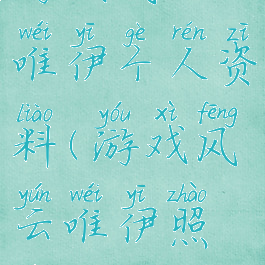 wéi yī gè rén zī
唯伊个人资
liào yóu xì fēng
料(游戏风
yún wéi yī zhào
云唯伊照